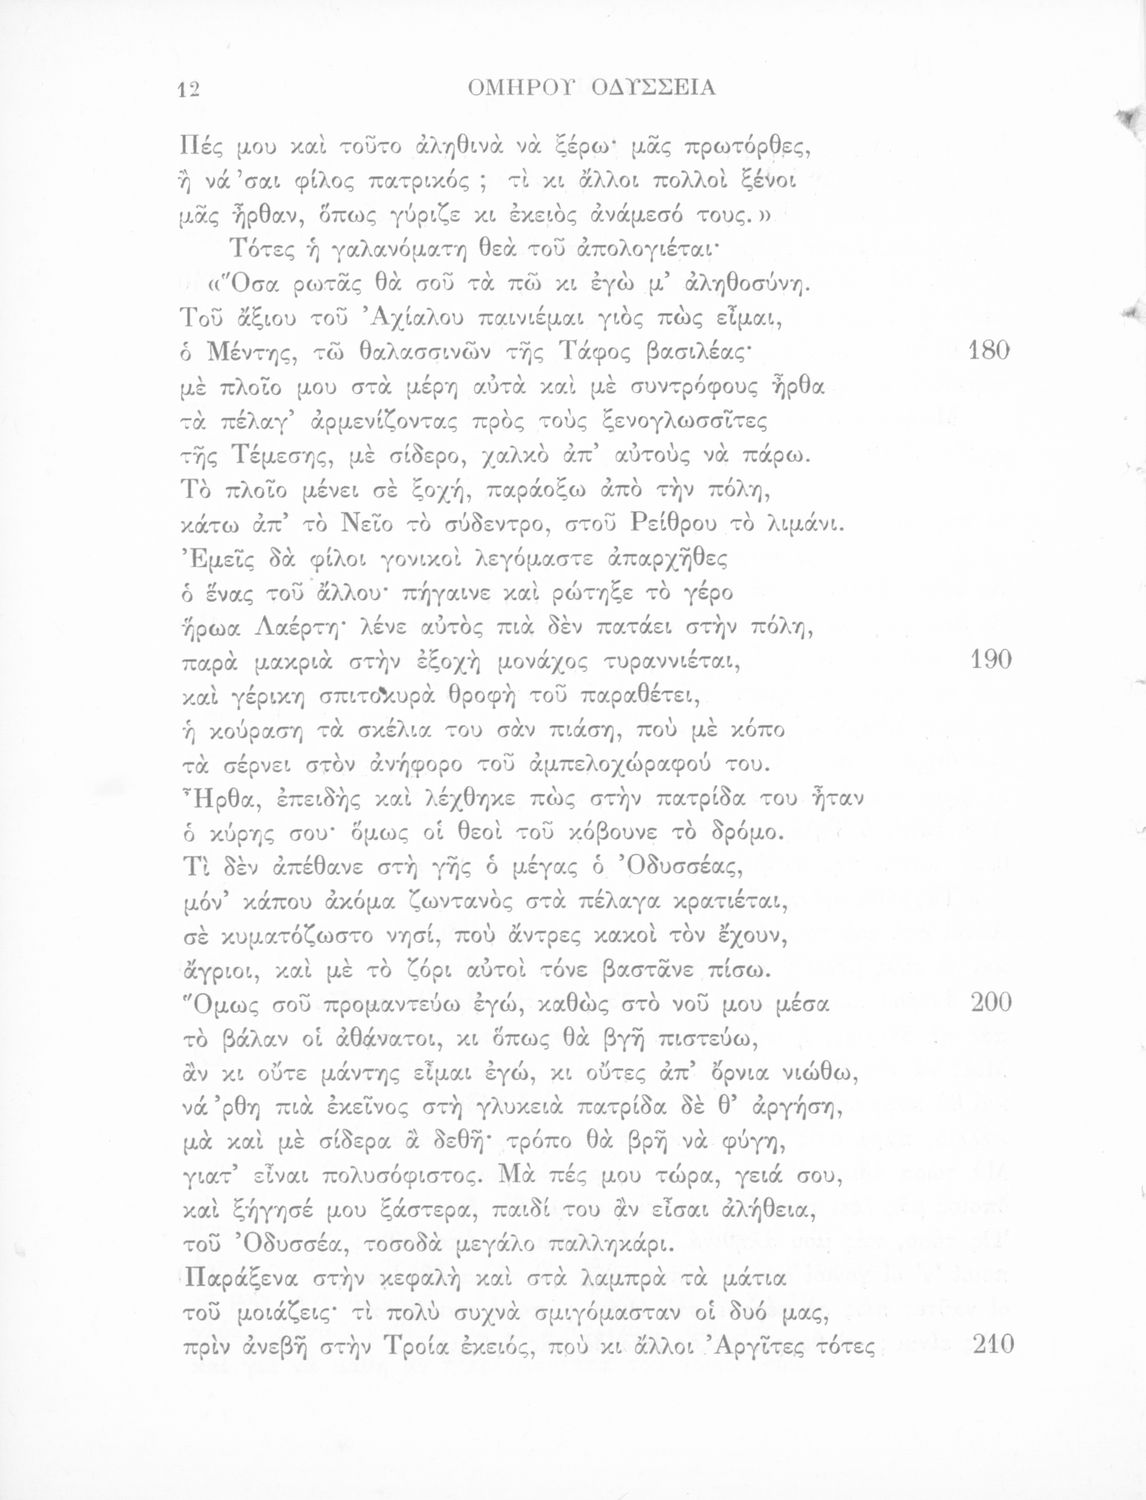 12 ΟΜΗΡΟΥ ΟΔΥΣΣΕΙΑ
Πές μου καὶ τοῦτο ἀληθινὰ νὰ ξέρω· μᾶς πρωτόρθες,
ἢ νά 'σαι φίλος πατρικός ; τὶ κι ἄλλοι πολλοὶ ξένοι
μᾶς ἦρθαν, ὅπως γύριζε κι ἐκειὸς ἀνάμεσό τους. »
Τότες ἡ γαλανόματη θεὰ τοῦ ἀπολογιέται·
«Ὅσα ρωτᾶς θὰ σοῦ τὰ πῶ κι ἐγὼ μ' ἀληθοσύνη.
Τοῦ ἄξιου τοῦ Ἀχίαλου παινιέμαι γιὸς πὼς εἶμαι,
ὁ Μέντης, τῶ θαλασσινῶν τῆς Τάφος βασιλέας· 180
μὲ πλοῖο μου στὰ μέρη αὐτὰ καὶ μὲ συντρόφους ἦρθα
τὰ πέλαγ' ἀρμενίζοντας πρὸς τοὺς ξενογλωσσῖτες
τῆς Τέμεσης, μὲ σίδερο, χαλκὸ ἀπ' αὐτοὺς νὰ πάρω.
Τὸ πλοῖο μένει σὲ ξοχή, παράοξω ἀπὸ τὴν πόλη,
κάτω ἀπ' τὸ Νεῖο τὸ σύδεντρο, στοῦ Ρείθρου τὸ λιμάνι.
Ἐμεῖς δὰ φίλοι γονικοὶ λεγόμαστε ἀπαρχῆθες
ὁ ἕνας τοῦ ἄλλου· πήγαινε καὶ ρώτηξε τὸ γέρο
ἥρωα Λαέρτη· λένε αὐτὸς πιὰ δὲν πατάει στὴν πόλη,
παρὰ μακριὰ στὴν ἐξοχὴ μονάχος τυραννιέται, 190
καὶ γέρικη σπιτοκυρὰ θροφὴ τοῦ παραθέτει,
ἡ κούραση τὰ σκέλια του σὰν πιάση, ποὺ μὲ κόπο
τὰ σέρνει στὸν ἀνήφορο τοῦ ἀμπελοχώραφού του.
Ἦρθα, ἐπειδὴς καὶ λέχθηκε πὼς στὴν πατρίδα του ἦταν
ὁ κύρης σου· ὅμως οἱ θεοὶ τοῦ κόβουνε τὸ δρόμο.
Τὶ δὲν ἀπέθανε στὴ γῆς ὁ μέγας ὁ Ὀδυσσέας,
μόν' κάπου ἀκόμα ζωντανὸς στὰ πέλαγα κρατιέται,
σὲ κυματόζωστο νησί, ποὺ ἄντρες κακοὶ τὸν ἔχουν,
ἄγριοι, καὶ μὲ τὸ ζόρι αὐτοὶ τόνε βαστᾶνε πίσω.
Ὅμως σοῦ προμαντεύω ἐγώ, καθὼς στὸ νοῦ μου μέσα 200
τὸ βάλαν οἱ ἀθάνατοι, κι ὅπως θὰ βγῆ πιστεύω,
ἂν κι οὔτε μάντης εἶμαι ἐγώ, κι οὔτες ἀπ' ὄρνια νιώθω,
νά 'ρθη πιὰ ἐκεῖνος στὴ γλυκειὰ πατρίδα δὲ θ' ἀργήση,
μὰ καὶ μὲ σίδερα ἂ δεθῆ· τρόπο θὰ βρῆ νὰ φύγη,
γιατ' εἶναι πολυσόφιστος. Μὰ πές μου τώρα, γειά σου,
καὶ ξήγησέ μου ξάστερα, παιδί του ἂν εἶσαι ἀλήθεια,
τοῦ Ὀδυσσέα, τοσοδὰ μεγάλο παλληκάρι.
Παράξενα στὴν κεφαλὴ καὶ στὰ λαμπρὰ τὰ μάτια
τοῦ μοιάζεις· τὶ πολὺ συχνὰ σμιγόμασταν οἱ δυό μας,
πρὶν ἀνεβῆ στὴν Τροία ἐκειός, ποὺ κι ἄλλοι Ἀργῖτες τότες 210